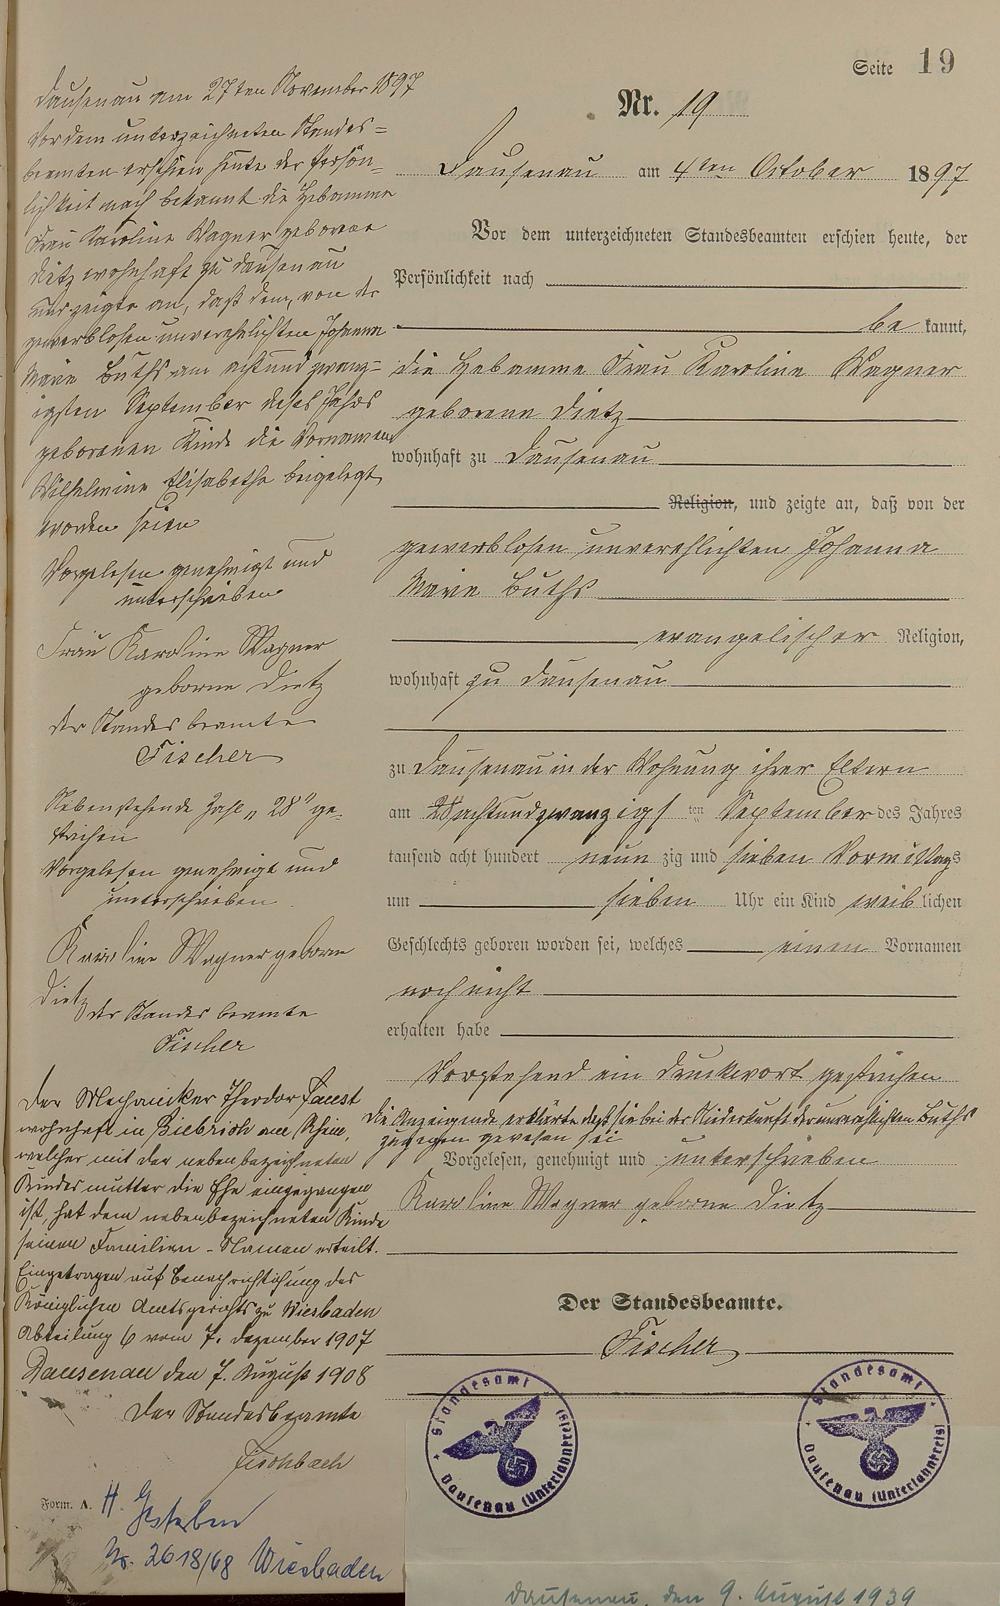 Seite 19
Nr. 19
Dausenau am 4ten October 1897
Vor dem unterzeichneten Standesbeamten erschien heute, der
Persönlichkeit nach
bekannt,
die Hebamme Frau Karoline Wagner
geborene Dietz
wohnhaft zu Dausenau
Religion, und zeigte an, daß von der
gewerblosen unverehlichten Johanna
Marie Buths
evangelischer Religion,
wohnhaft zu Dausenau
zu Dausenau in der Wohnung ihrer Eltern
am achtundzwanzigsten September des Jahres
tausend acht hundert neunzig und sieben Vormittags
um sieben Uhr ein Kind weiblichen
Geschlechts geboren worden sei, welches einen Vornamen
noch nicht
erhalten habe
Vorstehend ein Druckwort gestrichen
Die Anzeigende erklärte daß sie bei der Niederkunft der unverehlichten Buths
zugegen gewesen sei
Vorgelesen, genehmigt und unterschrieben
Karoline Wagner geborne Dietz
Der Standesbeamte.
Fischer
Standesamt
Dausenau (Unterlahnkreis)
Standesamt
Dausenau (Unterlahnkreis)
Dausenau, den 9. August 1939
Dausenau am 27ten November 1897
Vor dem unterzeichneten Standes=
beamten erschien heute der Persön-
lichkeit nach bekannt die Hebamme
Frau Karoline Wagner geborene
Dietz wohnhaft zu Dausenau
und zeigte an, daß dem, von der
gewerblosen unverehlichten Johanna
Marie Buths am achtundzwanz=
igsten September dieses Jahres
geborenen Kinde die Vornamen
Wilhelmine Elisabetha beigelegt
worden seien
Vorgelesen genehmigt und
unterschrieben
Frau Karoline Wagner
geborne Dietz
der Standesbeamte
Fischer
Nebenstehende Zahl „28" ge-
strichen
Vorgelesen genehmigt und
unterschrieben
Karoline Wagner geborne
Dietz
der Standesbeamte
Fischer
Der Mechaniker Theodor Faust
wohnhaft in Biebrich am Rhein,
welcher mit der nebenbezeichneten
Kindesmutter die Ehe eingegangen
ist, hat dem nebenbezeichneten Kinde
seinen Familien-Namen erteilt.
Eingetragen auf Benachrichtichung des
Königlichen Amtsgerichts zu Wiesbaden
Abteilung 6 vom 7. Dezember 1907
Dausenau den 7. August 1908
Der Standesbeamte
Fischbach
Form. A.
H. Gestorben
Nr. 2618/68 Wiesbaden